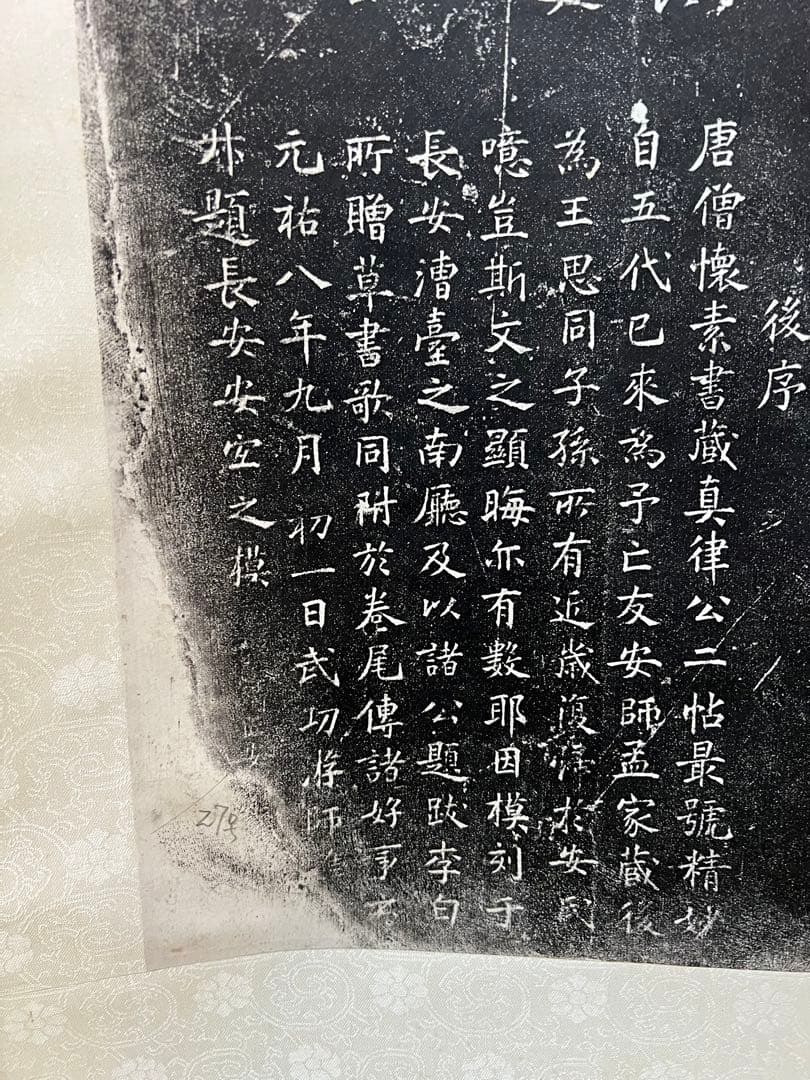 後序
唐僧懷素書藏真律公二帖最號精妙
自五代已來為予亡友安師孟家藏後
為王思同子孫所有近歲復歸於安民
噫豈斯文之顯晦亦有數耶因模刻于
長安漕臺之南廳及以諸公題跋李白
所贈草書歌同附於卷尾傳諸好事者
元祐八年九月初一日武功游師雄
題長安安宜之模
27号